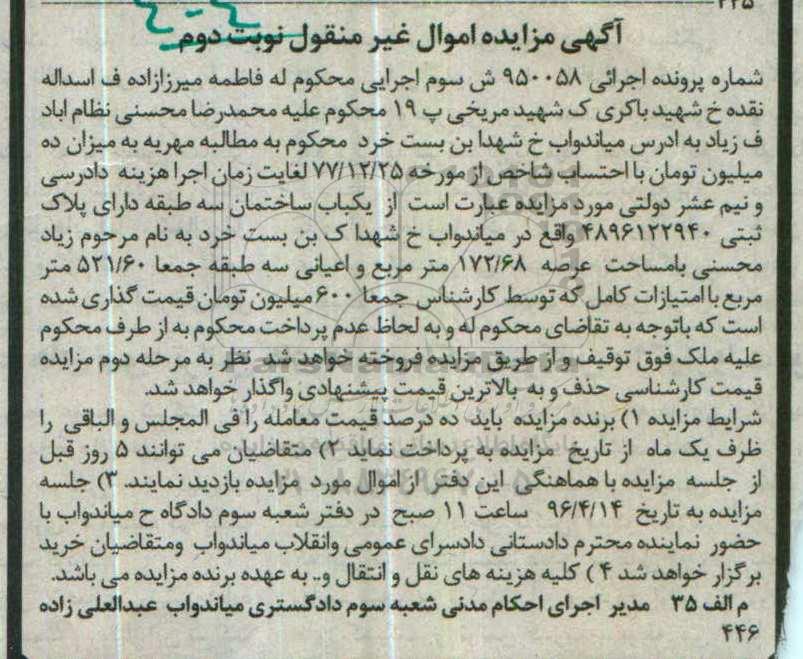 ۲۲۵
آگهی مزایده اموال غیر منقول نوبت دوم
شماره پرونده اجرائی ۹۵۰۰۵۸ ش سوم اجرایی محکوم له فاطمه میرزازاده ف اسداله
نقده خ شهید باکری ک شهید مریخی پ ۱۹ محکوم علیه محمدرضا محسنی نظام اباد
ف زیاد به ادرس میاندواب خ شهدا بن بست خرد محکوم به مطالبه مهریه به میزان ده
میلیون تومان با احتساب شاخص از مورخه ۷۷/۱۲/۲۵ لغایت زمان اجرا هزینه دادرسی
و نیم عشر دولتی مورد مزایده عبارت است از یکباب ساختمان سه طبقه دارای پلاک
ثبتی ۴۸۹۶۱۲۲۹۴۰ واقع در میاندواب خ شهدا ک بن بست خرد به نام مرحوم زیاد
محسنی بامساحت عرصه ۱۷۲/۶۸ متر مربع و اعیانی سه طبقه جمعا ۵۲۱/۶۰ متر
مربع با امتیازات کامل که توسط کارشناس جمعا ۶۰۰ میلیون تومان قیمت گذاری شده
است که باتوجه به تقاضای محکوم له و به لحاظ عدم پرداخت محکوم به از طرف محکوم
علیه ملک فوق توقیف و از طریق مزایده فروخته خواهد شد نظر به مرحله دوم مزایده
قیمت کارشناسی حذف و به بالاترین قیمت پیشنهادی واگذار خواهد شد.
شرایط مزایده ۱) برنده مزایده باید ده درصد قیمت معامله را فی المجلس و الباقی را
ظرف یک ماه از تاریخ مزایده به پرداخت نماید ۲) متقاضیان می توانند ۵ روز قبل
از جلسه مزایده با هماهنگی این دفتر از اموال مورد مزایده بازدید نمایند. ۳) جلسه
مزایده به تاریخ ۹۶/۴/۱۴ ساعت ۱۱ صبح در دفتر شعبه سوم دادگاه ح میاندواب با
حضور نماینده محترم دادستانی دادسرای عمومی وانقلاب میاندواب ومتقاضیان خرید
برگزار خواهد شد ۴) کلیه هزینه های نقل و انتقال و.. به عهده برنده مزایده می باشد.
م الف ۳۵ مدیر اجرای احکام مدنی شعبه سوم دادگستری میاندواب عبدالعلی زاده
۴۴۶